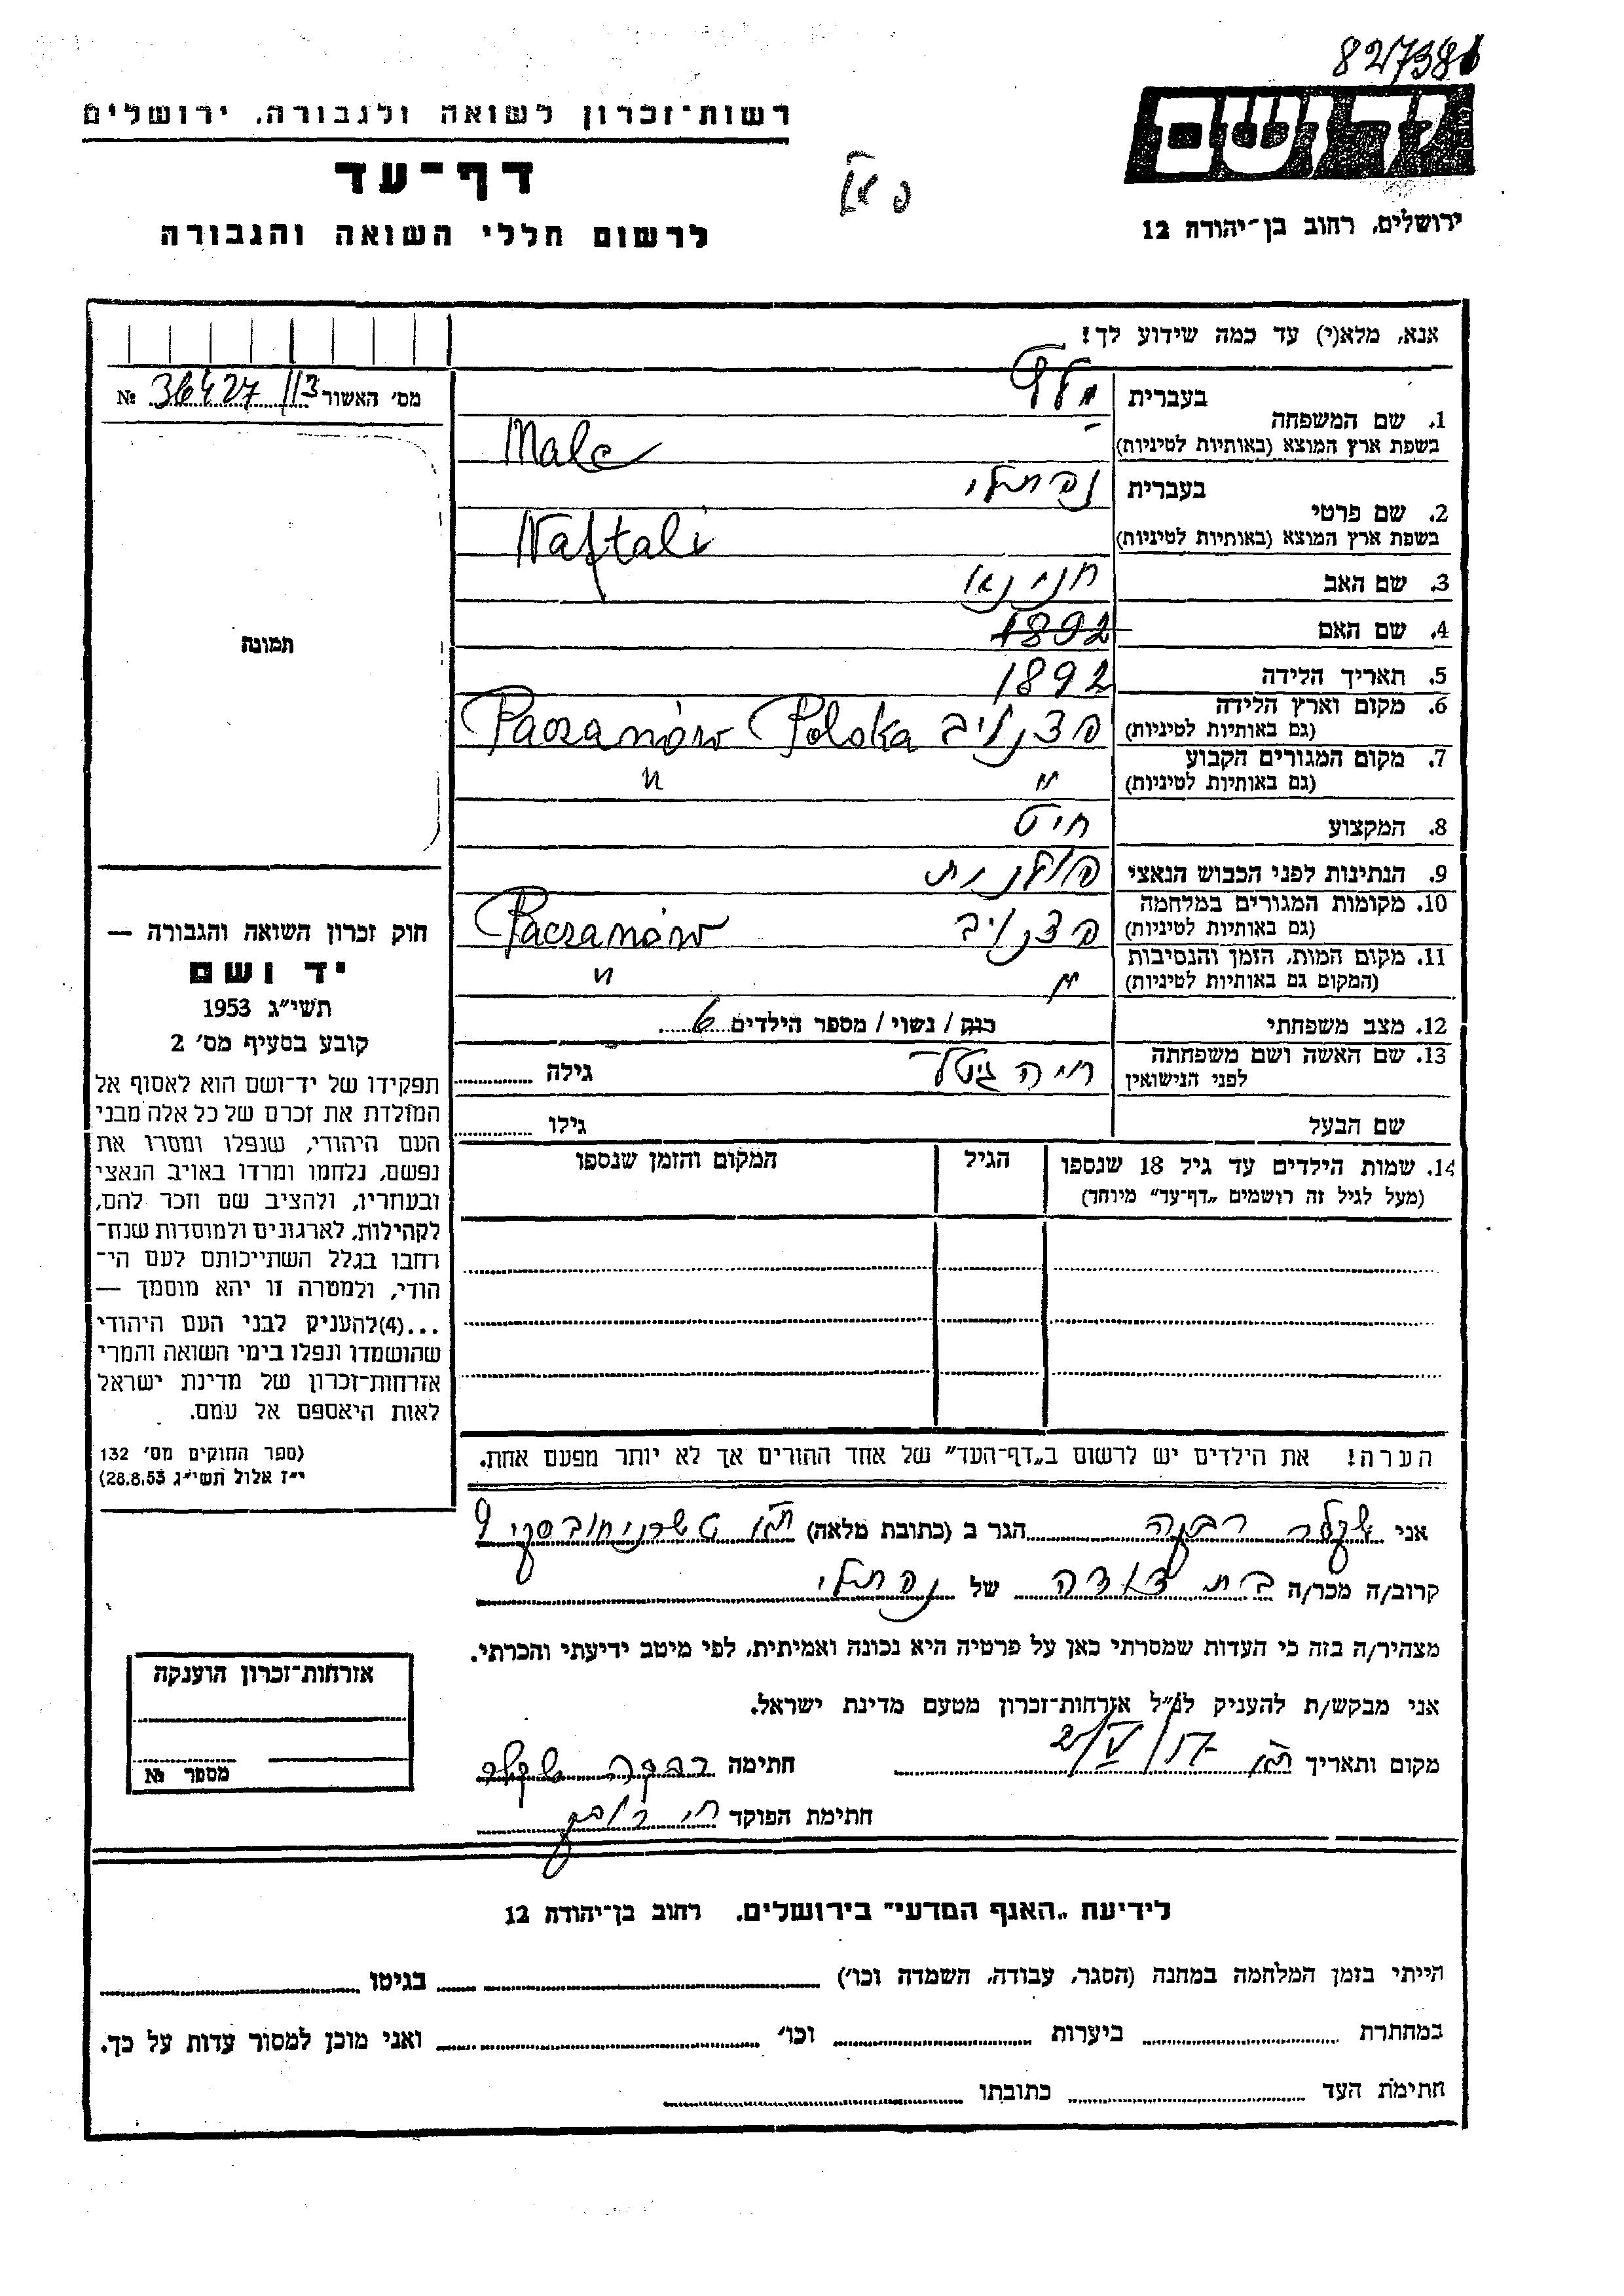 827386
ידושם
ירושלים, רחוב בן־יהודה 12
רשות־זכרון לשואה ולגבורה, ירושלים
דף־עד
לרשום חללי השואה והגבורה
אנא, מלא(י) עד כמה שידוע לך!
מס׳ האשור 36427/113 №
תמונה
1. שם המשפחה
בעברית מלץ
בשפת ארץ המוצא (באותיות לטיניות) Malc
2. שם פרטי
בעברית נפתלי
בשפת ארץ המוצא (באותיות לטיניות) Naftali
3. שם האב חנינא
4. שם האם 1892
5. תאריך הלידה 1892
6. מקום וארץ הלידה
(גם באותיות לטיניות) פצנוב Paczanów Polska
7. מקום המגורים הקבוע
(גם באותיות לטיניות) " "
8. המקצוע חיט
9. הנתינות לפני הכבוש הנאצי פולנית
10. מקומות המגורים במלחמה
(גם באותיות לטיניות) פצנוב Paczanów
11. מקום המות, הזמן והנסיבות
(המקום גם באותיות לטיניות) " "
12. מצב משפחתי רוק / נשוי / מספר הילדים 6
13. שם האשה ושם משפחתה
לפני הנישואין חיה גיטל גילה
שם הבעל גילו
14. שמות הילדים עד גיל 18 שנספו הגיל המקום והזמן שנספו
(מעל לגיל זה רושמים „דף־עד״ מיוחד)
הערה! את הילדים יש לרשום ב„דף־העד״ של אחד ההורים אך לא יותר מפעם אחת.
חוק זכרון השואה והגבורה —
יד ושם
תשי״ג 1953
קובע בסעיף מס׳ 2
תפקידו של יד־ושם הוא לאסוף אל
המולדת את זכרם של כל אלה מבני
העם היהודי, שנפלו ומסרו את
נפשם, נלחמו ומרדו באויב הנאצי
ובעוזריו, ולהציב שם וזכר להם,
לקהילות, לארגונים ולמוסדות שנח־
רחבו בגלל השתייכותם לעם הי־
הודי, ולמטרה זו יהא מוסמך —
...(4)להעניק לבני העם היהודי
שהושמדו ונפלו בימי השואה והמרי
אזרחות־זכרון של מדינת ישראל
לאות היאספם אל עמם.
(ספר החוקים מס׳ 132
י״ז אלול תשי״ג 28.8.53)
אני רבקה הגר ב (כתובת מלאה) ת״א טשרניחובסקי 9
קרוב/ה מכר/ה בת דודה של נפתלי
מצהיר/ה בזה כי העדות שמסרתי כאן על פרטיה היא נכונה ואמיתית, לפי מיטב ידיעתי והכרתי.
אני מבקש/ת להעניק לנ״ל אזרחות־זכרון מטעם מדינת ישראל.
מקום ותאריך ת״א חתימה רבקה
חתימת הפוקד
אזרחות־זכרון הוענקה
מספר №
לידיעת „האגף המדעי״ בירושלים. רחוב בן־יהודה 12
הייתי בזמן המלחמה במחנה (הסגר, עבודה, השמדה וכו׳) בגיטו
במחתרת ביערות וכו׳ ואני מוכן למסור עדות על כך.
חתימת העד כתובתו